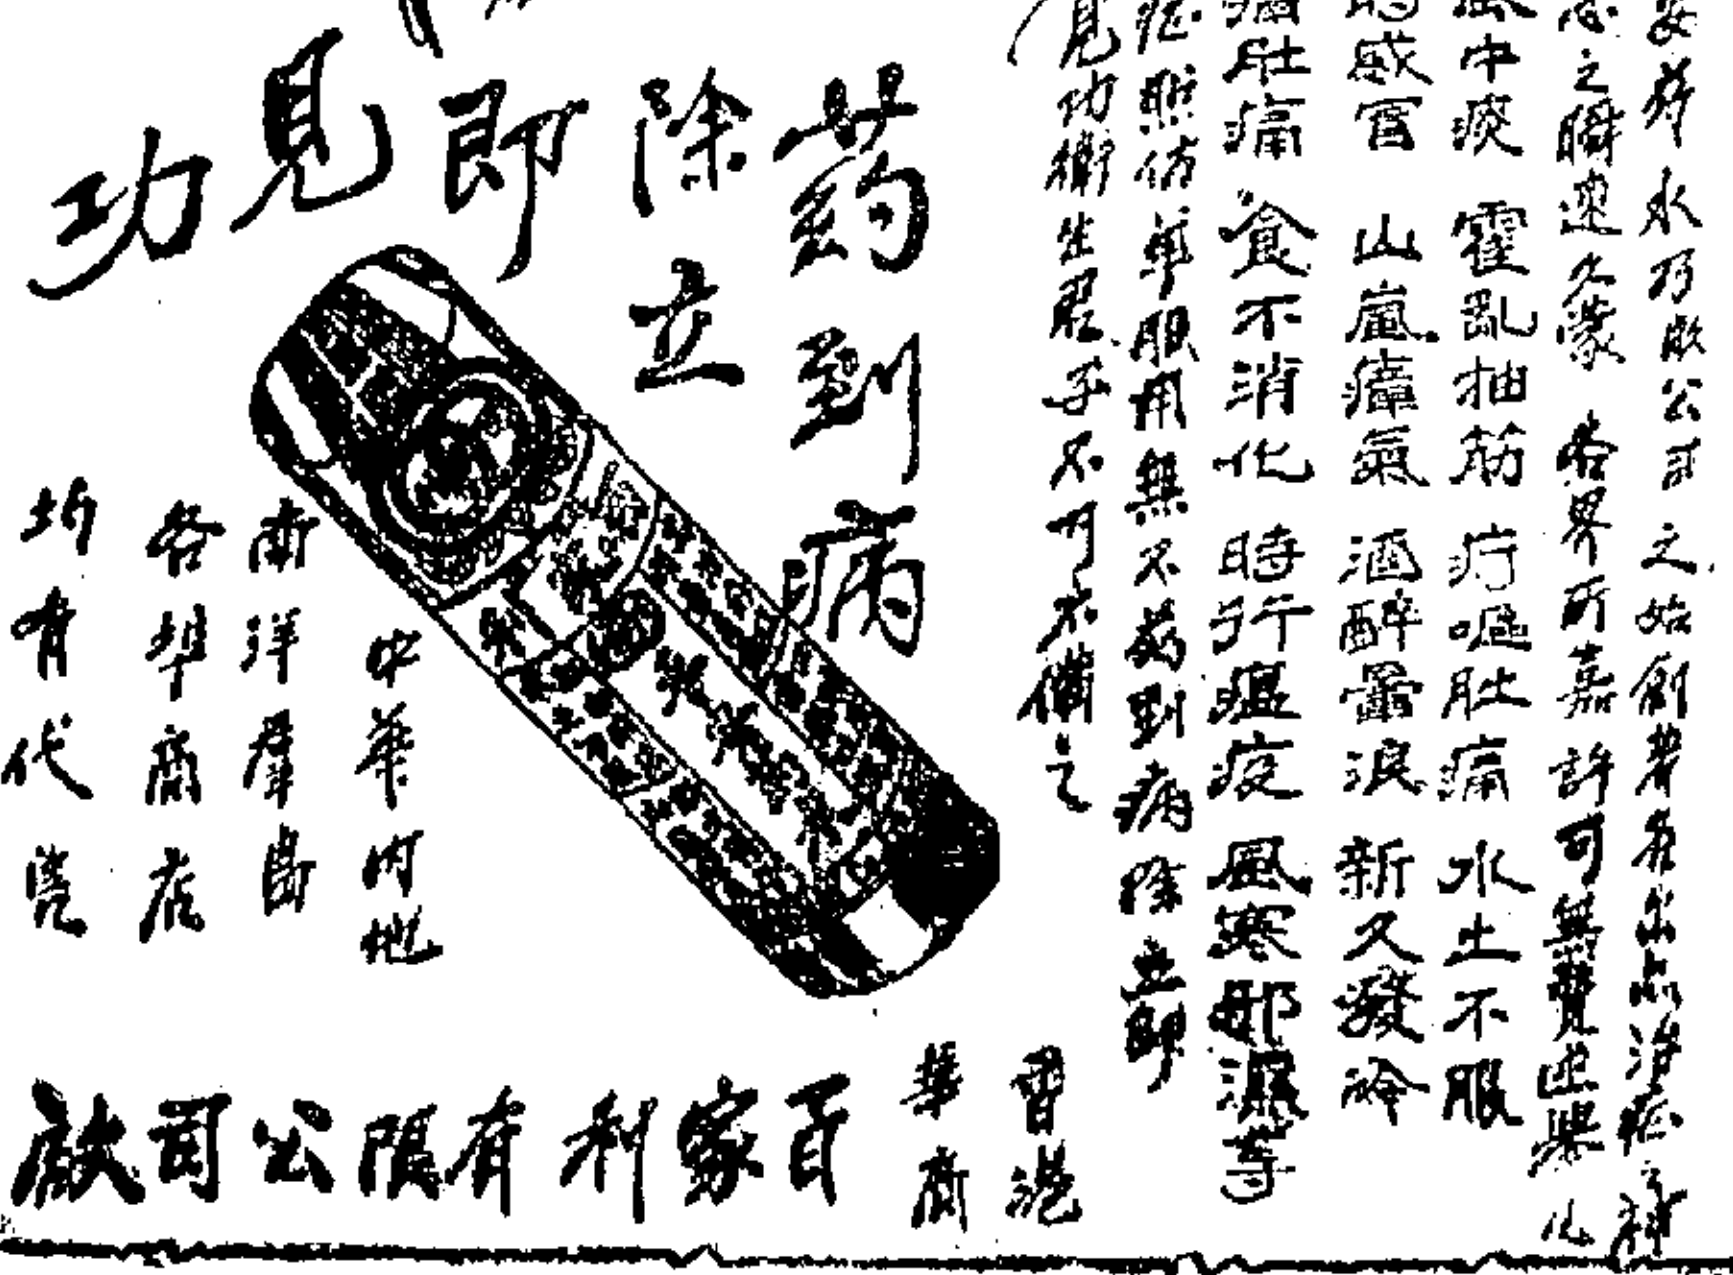 水乃敝公司之始創著名出品治症之神
之瞬速久蒙 各界所嘉許可無贅述舉凡
中痰 霍亂抽筋 疴嘔肚痛 水土不服
感冒 山嵐瘴氣 酒醉暈浪 新久發冷
肚痛 食不消化 時行瘟疫 風寒邪濕等
症照仿單服用無不葯到病除立即
見功衛生君子不可不備之
葯到病
除立
即
見
功
中華內地
南洋羣島
各埠商店
均有代售
香港
華商
百家利有限公司啟